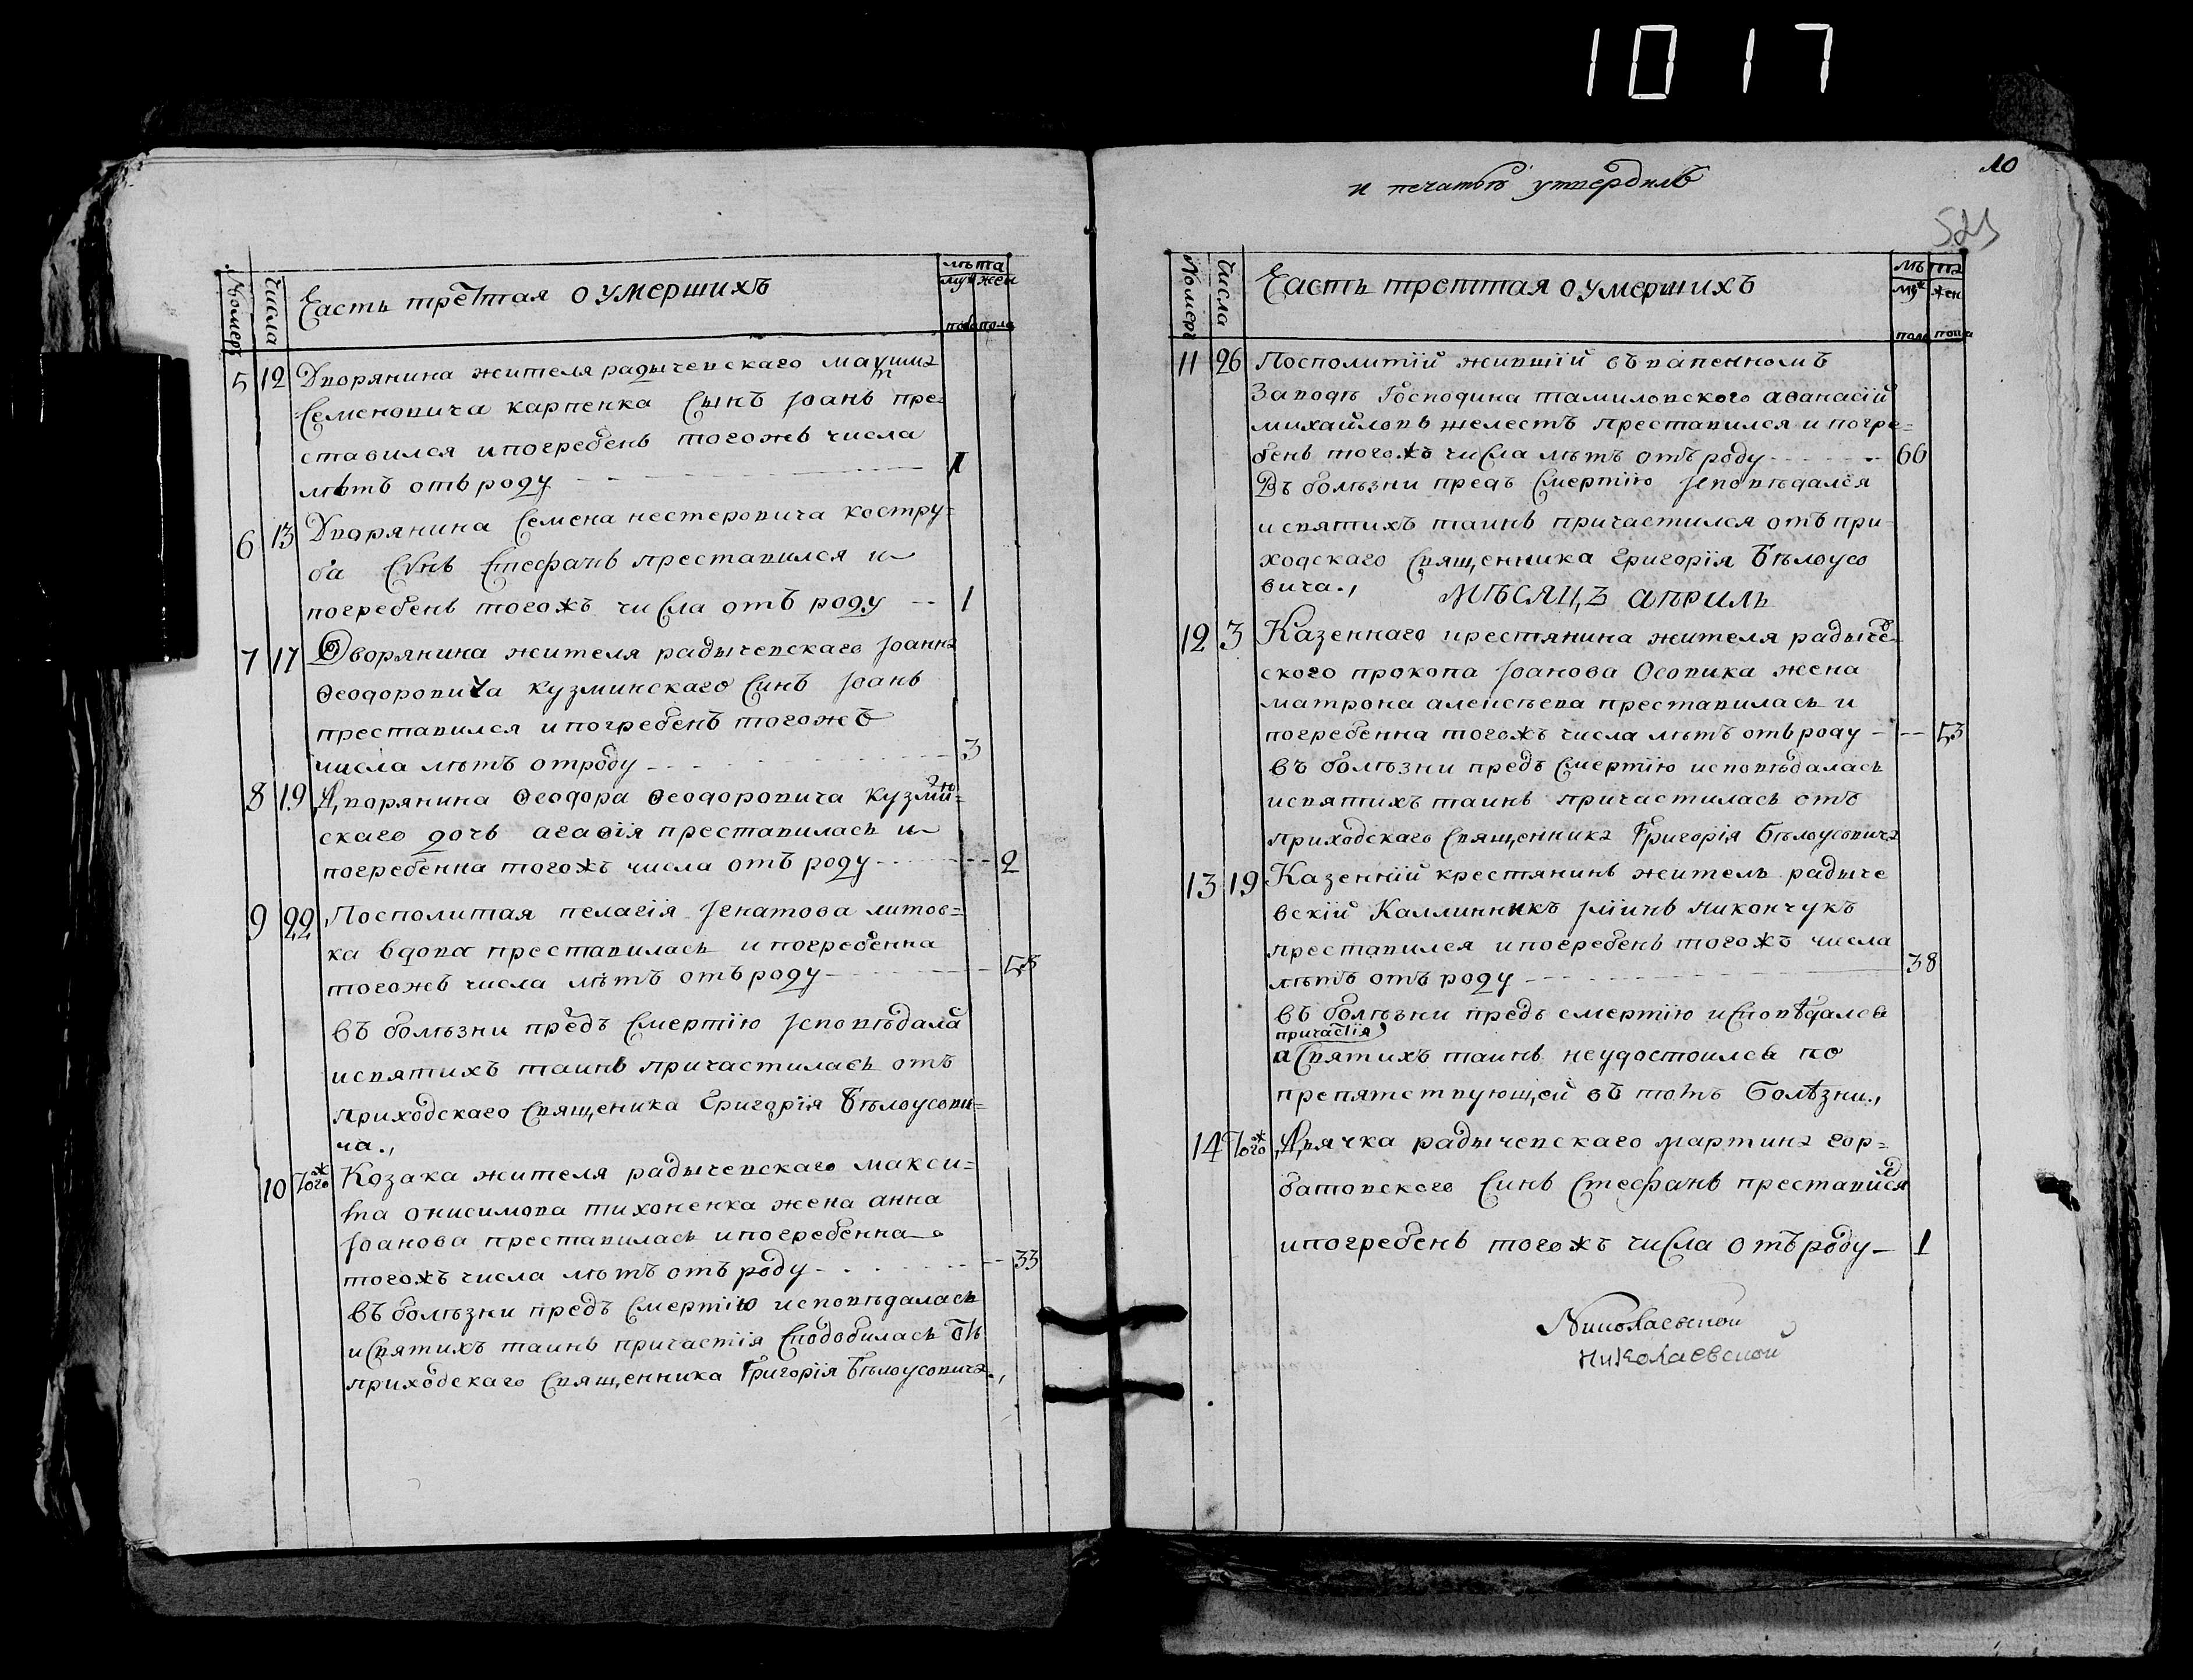 1017
и печатью утвердилъ
10
521
Номеръ
Числа
Часть третая о умершихъ
лѣта
муж жен
пола пола
5 12 Дворянина жителя радычевскаго Максима
Семеновича карпенка Сынъ Іоанъ пре=
ставился и погребенъ тогожъ числа
лѣтъ отъ роду 1
6 13 Дворянина Семена нестеровича костру=
ба Сынъ Стефанъ преставился и
погребенъ тогожъ числа отъ роду 1
7 17 Дворянина жителя радычевскаго Іоанна
Ѳеодоровича кузминскаго Синъ Іоанъ
преставился и погребенъ тогожъ
числа лѣтъ отроду 3
8 19 Дворянина Ѳеодора Ѳеодоровича кузмин=
скаго дочь агаѳія преставилась и
погребенна тогожъ числа отъ роду 2
9 22 Посполитая пелагія Ігнатова литов=
ка вдова преставилась и погребенна
тогожъ числа лѣтъ отъ роду 58
въ болѣзни предъ СмертіюІсповѣдала
и святихъ таинъ причастилась отъ
приходскаго Священика Григорія Бѣлоусови=
ча.,
10 Тогож Козака жителя радычевскаго макси=
ма онисимова тихоненка жена анна
Іоанова преставилась и погребенна
тогожъ числа лѣтъ отъ роду 33
въ болѣзни предъ Смертію исповѣдалась
и Святихъ таинъ причастія Сподобилась отъ
приходскаго Священника Григорія Бѣлоусовича.,
Номеръ
Числа
Часть третая о умершихъ
лѣ та
муж жен
пола пола
11 26 Посполитій жившій въ вапенномъ
Заводѣ Господина тамиловского аѳанасій
михайловъ желестъ преставился и погре=
бенъ тогожъ числа лѣтъ отъ роду 66
Въ болѣзни предъ Смертію Ісповѣдался
и святихъ таинъ причастился отъ при
ходскаго Священника Григорія Бѣлоусо
вича.,
МѢСЯЦЪ априль
12 3 Казеннаго крестянина жителя радыче
ского прокопа Іоанова Осовика жена
матрона алексѣева преставилась и
погребенна тогожъ числа лѣтъ отъ роду 53
въ болѣзни предъ Смертію исповѣдалась
и святихъ таинъ причастилась отъ
приходскаго Священника Григорія Бѣлоусовича
13 19 Казенній крестянинъ житель радыче
вскій Каллинникъ Іліинъ никончукъ
преставился и погребенъ тогожъ числа
лѣтъ отъ роду 38
въ болѣзни предъ смертію исповѣдался
причастія
а Святихъ таинъ неудостоился по
препятствующей въ тотъ болѣзни.,
14 Тогож Дьячка радычевскаго мартина гор=
батовскего Синъ Стефанъ преставился
и погребенъ тогожъ числа отъ роду 1
Николаевской
Николаевской